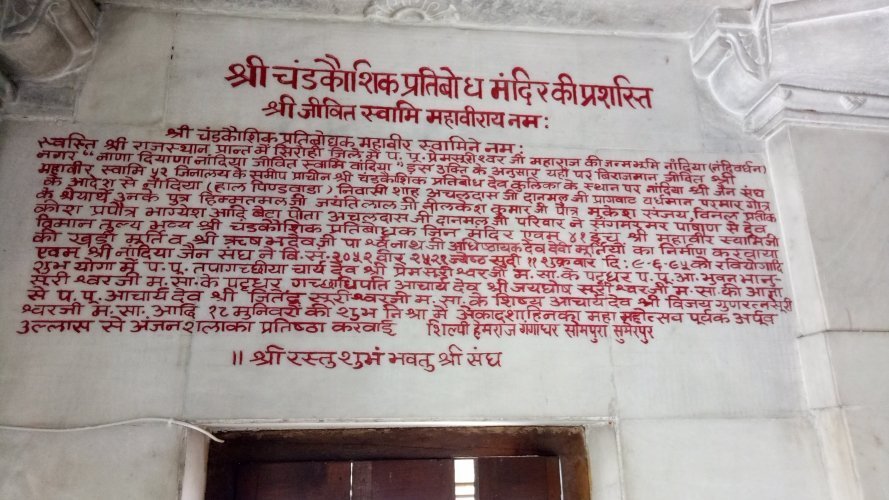 श्री चंडकौशिक प्रतिबोध मंदिर की प्रशस्ति
श्री जीवित स्वामि महावीराय नम:
श्री चंडकौशिक प्रतिबोधक महावीर स्वामिने नम:
स्वस्ति श्री राजस्थान प्रान्त में सिरोही जिले में प. पू. प्रेमसूरीश्वर जी महाराज की जन्मभूमि नांदिया (नंदिवर्धन)
नगर "नाणा दियाणा नांदिया जीवित स्वामी वांदिया" इस उक्ति के अनुसार यहाँ पर बिराजमान जीवित श्री
महावीर स्वामि ५२ जिनालय के समीप प्राचीन श्री चंडकौशिक प्रतिबोध देव कुलिका के स्थान पर नांदिया श्री जैन संघ
के आदेश से नांदिया (हाल पिण्डवाडा) निवासी शाह अचलदास जी दानमल जी प्राग्वाट वर्धमान परमार गोत्र
के श्रेयार्थे उनके पुत्र हिम्मतमल जी जयंतिलाल जी नीलकेश कुमार जी पौत्र मुकेश संजय विमल प्रतीक
प्रपौत्र भाग्येश आदि बेटा पोता अचलदास जी दानमल जी परिवार ने संगमरमर पाषाण से देव
विमान तुल्य भव्य श्री चंडकौशिक प्रतिबोधक जिन मंदिर एवम् ४१ इंच श्री महावीर स्वामिजी
की खड़ी मूर्ति व श्री ऋषभदेवजी पार्श्वनाथ जी अधिष्ठायक देव देवी मूर्तियों का निर्माण करवाया
एवम श्री नांदिया जैन संघ ने वि. सं. २०५२ वीर २५२१ ज्येष्ठ सुदी ११ शुक्रवार दि: ९-६-९५ को रवियोगादि
शुभ योगा में प. पू. तपागच्छीया चार्य देव श्री प्रेमसूरीश्वर जी म. सा. के पट्टधर प. पू. आ. भुवन भानु
सूरीश्वर जी म. सा. के पट्टधर गच्छाधिपति आचार्य देव श्री जयघोष सूरीश्वर जी म. सा. की आज्ञा
से प. पू. आचार्य देव श्री जितेंद्र सूरीश्वर जी म. सा. के शिष्य आचार्य देव श्री विजय गुणरत्नसूरी
श्वरजी म. सा. आदि १८ मुनिवरो की शुभ निश्रा में अेकादशाहिनका महा महोत्सव पूर्वक अपूर्व
उल्लास से अंजनशलाका प्रतिष्ठा करवाई शिल्पी हेमराज गंगाधर सोमपुरा सुमेरपुर
॥ श्री रस्तु शुभं भवतु श्री संघ